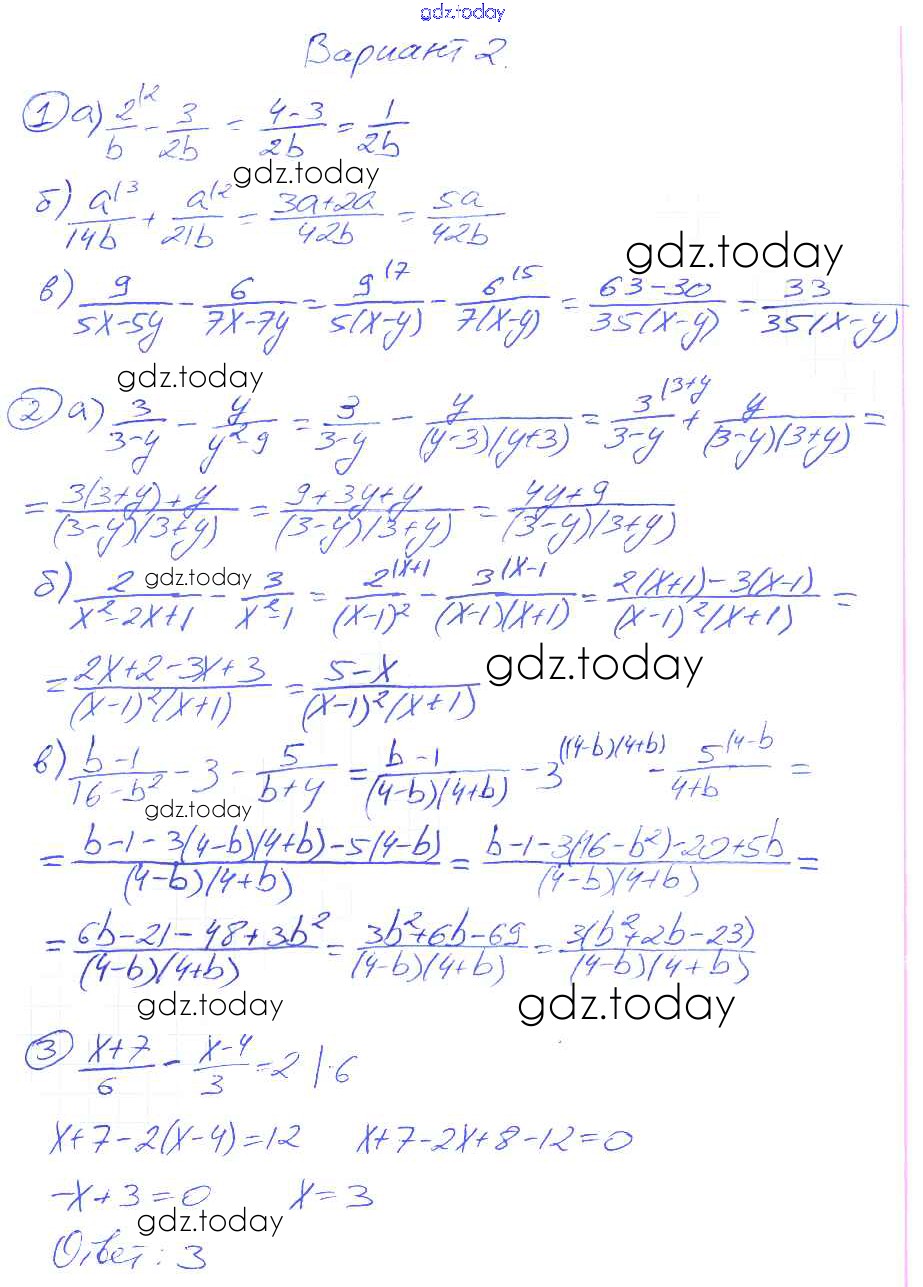 gdz.today
Вариант 2.
① а) 2^{|2}/b - 3/2b = (4-3)/2b = 1/2b
gdz.today
б) a^{|3}/14b + a^{|2}/21b = (3a+2a)/42b = 5a/42b
gdz.today
в) 9/(5x-5y) - 6/(7x-7y) = 9^{|7}/5(x-y) - 6^{|5}/7(x-y) = (63-30)/35(x-y) = 33/35(x-y)
gdz.today
② а) 3/(3-y) - y/(y²-9) = 3/(3-y) - y/(y-3)(y+3) = 3^{|3+y}/(3-y) + y/(3-y)(3+y) =
= (3(3+y)+y)/(3-y)(3+y) = (9+3y+y)/(3-y)(3+y) = (4y+9)/(3-y)(3+y)
gdz.today
б) 2/(x²-2x+1) - 3/(x²-1) = 2^{|x+1}/(x-1)² - 3^{|x-1}/(x-1)(x+1) = (2(x+1)-3(x-1))/(x-1)²(x+1) =
= (2x+2-3x+3)/(x-1)²(x+1) = (5-x)/(x-1)²(x+1)
gdz.today
в) (b-1)/(16-b²) - 3 - 5/(b+4) = (b-1)/(4-b)(4+b) - 3^{|(4-b)(4+b)} - 5^{|4-b}/(4+b) =
gdz.today
= (b-1-3(4-b)(4+b)-5(4-b))/(4-b)(4+b) = (b-1-3(16-b²)-20+5b)/(4-b)(4+b) =
= (6b-21-48+3b²)/(4-b)(4+b) = (3b²+6b-69)/(4-b)(4+b) = 3(b²+2b-23)/(4-b)(4+b)
gdz.today
gdz.today
③ (x+7)/6 - (x-4)/3 = 2 |·6
x+7-2(x-4)=12 x+7-2x+8-12=0
-x+3=0 x=3
gdz.today
Ответ: 3